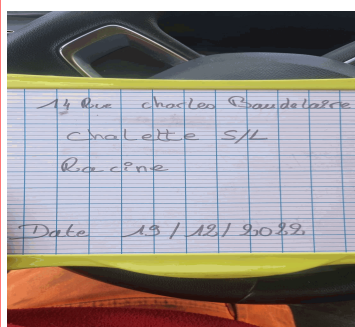 14 Rue charles Baudelaire
chalette S/L
Racine
Date 13/12/2022